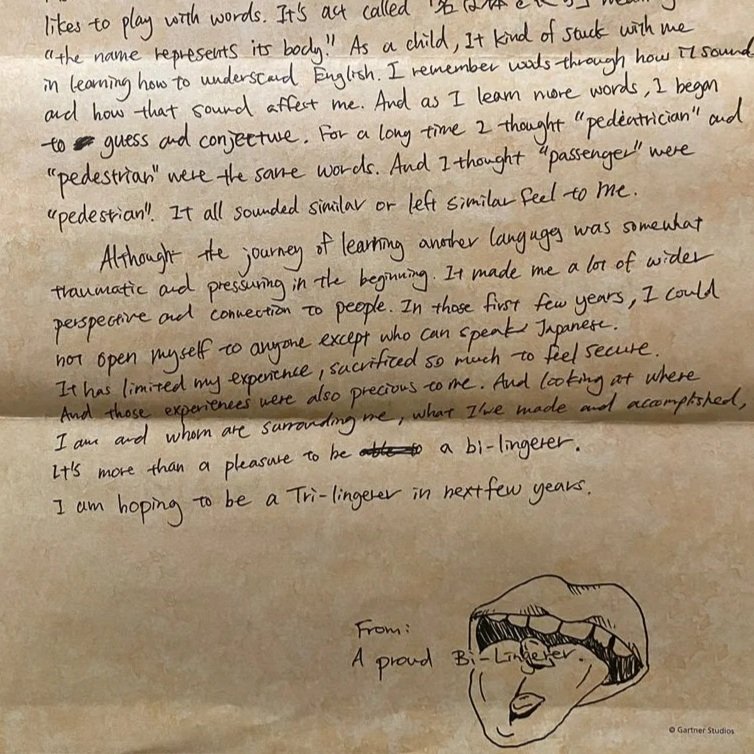 likes to play with words. It's act called "名は体を
"the name represents its body." As a child, It kind of stuck with me
in learning how to understand English. I remember words through how it sound
and how that sound affect me. And as I learn more words, I began
to guess and conjecture. For a long time I thought "pedeatrician" and
"pedestrian" were the same words. And I thought "passenger" were
"pedestrian". It all sounded similar or left similar feel to me.
Although the journey of learning another language was somewhat
traumatic and pressuring in the beginning. It made me a lot of wider
perspective and connection to people. In those first few years, I could
not open myself to anyone except who can speak Japanese.
It has limited my experience, sacrificed so much to feel secure.
And those experiences were also precious to me. And looking at where
I am and whom are surrounding me, what I've made and accomplished,
It's more than a pleasure to be a bi-lingerer.
I am hoping to be a Tri-lingerer in next few years.
From:
A proud Bi-Lingerer.
© Gartner Studios